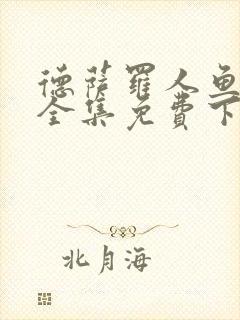 德萨罗人鱼
全集免费下
北月海